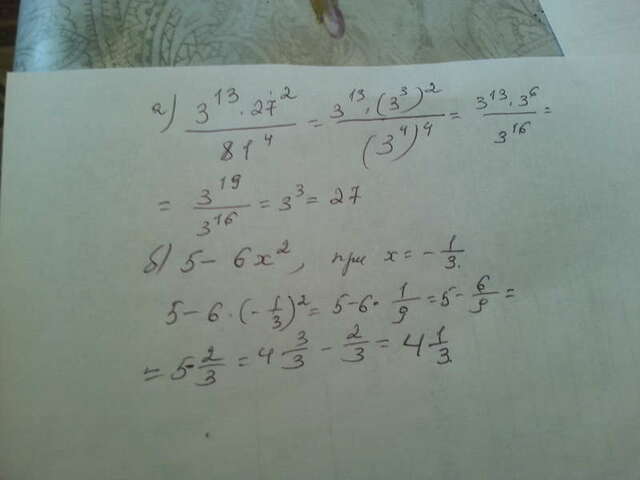 а) (3^13 · 27^2)/(81^4) = (3^13 · (3^3)^2)/((3^4)^4) = (3^13 · 3^6)/(3^16) =
= 3^19/3^16 = 3^3 = 27
б) 5 − 6x^2, при x = −1/3.
5 − 6 · (−1/3)^2 = 5 − 6 · 1/9 = 5 − 6/9 =
= 5 − 2/3 = 4 3/3 − 2/3 = 4 1/3.